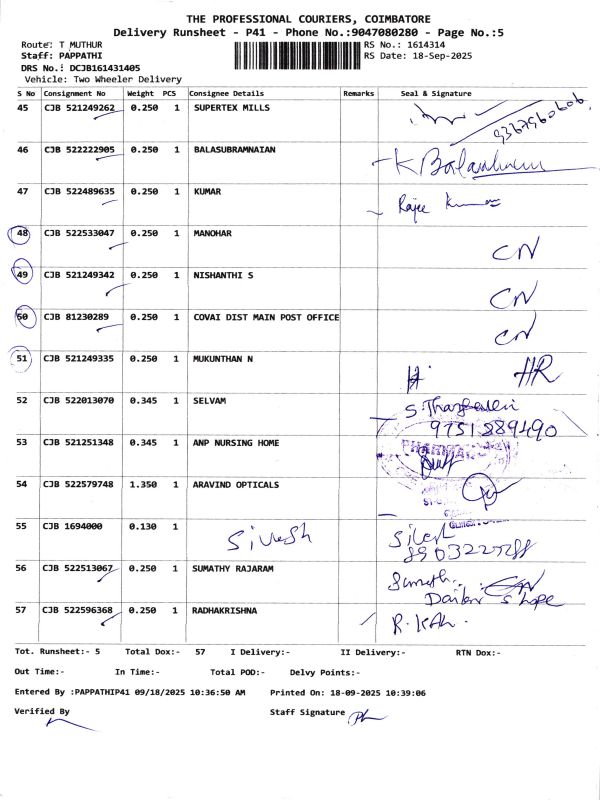 THE PROFESSIONAL COURIERS, COIMBATORE
Delivery Runsheet - P41 - Phone No.:9047080280 - Page No.:5
Route: T MUTHUR RS No.: 1614314
Staff: PAPPATHI RS Date: 18-Sep-2025
DRS No.: DCJB161431405
Vehicle: Two Wheeler Delivery
S No Consignment No Weight PCS Consignee Details Remarks Seal & Signature
45 CJB 521249262 0.250 1 SUPERTEX MILLS
46 CJB 522222905 0.250 1 BALASUBRAMNAIAN
47 CJB 522489635 0.250 1 KUMAR
48 CJB 522533047 0.250 1 MANOHAR CN
49 CJB 521249342 0.250 1 NISHANTHI S CN
50 CJB 81230289 0.250 1 COVAI DIST MAIN POST OFFICE CN
51 CJB 521249335 0.250 1 MUKUNTHAN N HR
52 CJB 522013070 0.345 1 SELVAM
53 CJB 521251348 0.345 1 ANP NURSING HOME
54 CJB 522579748 1.350 1 ARAVIND OPTICALS
55 CJB 1694000 0.130 1
56 CJB 522513067 0.250 1 SUMATHY RAJARAM
57 CJB 522596368 0.250 1 RADHAKRISHNA
Tot. Runsheet:- 5 Total Dox:- 57 I Delivery:- II Delivery:- RTN Dox:-
Out Time:- In Time:- Total POD:- Delvy Points:-
Entered By :PAPPATHIP41 09/18/2025 10:36:50 AM Printed On: 18-09-2025 10:39:06
Verified By Staff Signature